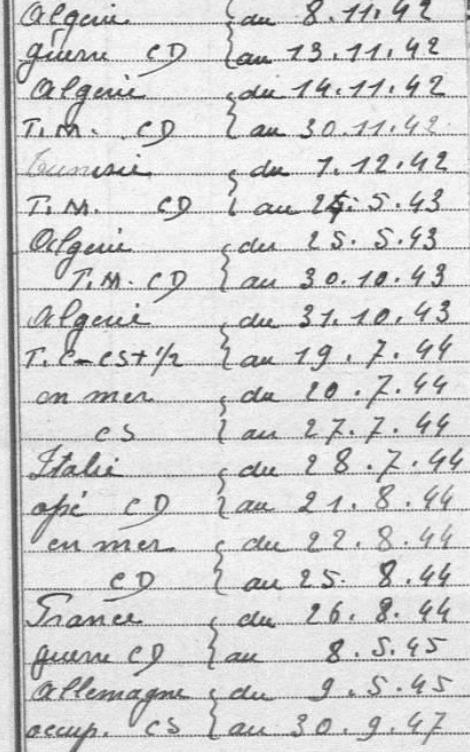 Algérie { du 8.11.42
guerre CD { au 13.11.42
Algérie { du 14.11.42
T.M. CD { au 30.11.42
Tunisie { du 1.12.42
T.M. CD { au 24.5.43
Algérie { du 25.5.43
T.M. CD { au 30.10.43
Algérie { du 31.10.43
T.C-CS+1/2 { au 19.7.44
en mer { du 20.7.44
CS { au 27.7.44
Italie { du 28.7.44
opé CD { au 21.8.44
en mer { du 22.8.44
CD { au 25.8.44
France { du 26.8.44
guerre CD { au 8.5.45
Allemagne { du 9.5.45
occup. CS { au 30.9.47